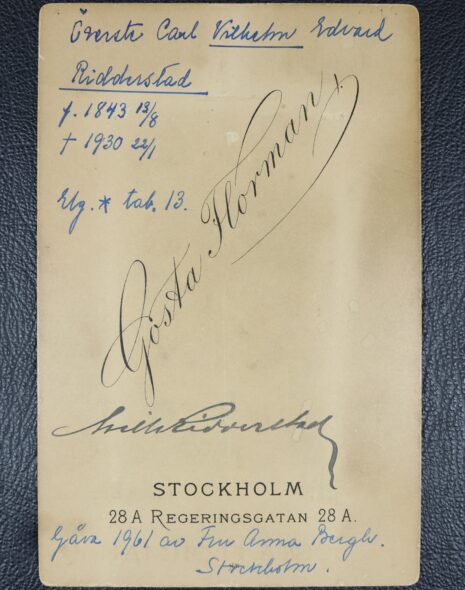 Överste Carl Vilhelm Edvard
Ridderstad
f. 1843 13/8
† 1930 22/1
Elg. * tab. 13.
Gösta Florman
Wilh Ridderstad
STOCKHOLM
28 A REGERINGSGATAN 28 A.
Gåva 1961 av Fru Anna Bergh.
Stockholm.